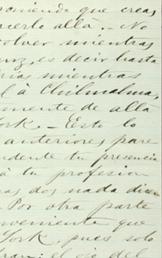 poniendo que creas
hacerlo allá. No
solver mientras
unos, es decir hasta
rias mientras
l á Chilmalma,
mente de alla
York. — Esto lo
anteriores pare
dente tu presencia
á tu profesion
as dos nada dice
Por otra parte
veniente que
York, pues solo